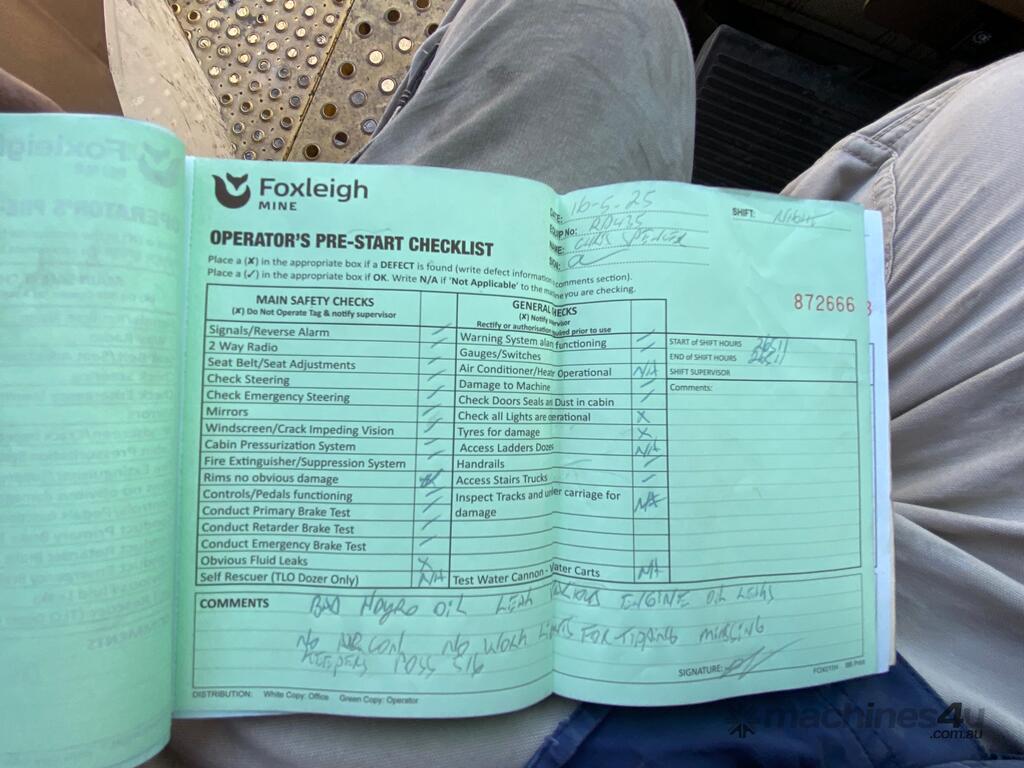 Foxleigh
MINE
OPERATOR'S PRE-START CHECKLIST
Place a (X) in the appropriate box if a DEFECT is found (write defect information comments section).
Place a (✓) in the appropriate box if OK. Write N/A if 'Not Applicable' to the you are checking.
DATE: 16-5-25
SHIFT: Night
EQUIP No: RD435
NAME: CHRIS
872666
MAIN SAFETY CHECKS
(X) Do Not Operate Tag & notify supervisor
Signals/Reverse Alarm ✓
2 Way Radio ✓
Seat Belt/Seat Adjustments ✓
Check Steering ✓
Check Emergency Steering ✓
Mirrors ✓
Windscreen/Crack Impeding Vision ✓
Cabin Pressurization System ✓
Fire Extinguisher/Suppression System ✓
Rims no obvious damage
Controls/Pedals functioning ✓
Conduct Primary Brake Test ✓
Conduct Retarder Brake Test ✓
Conduct Emergency Brake Test ✓
Obvious Fluid Leaks X
Self Rescuer (TLO Dozer Only) N/A
GENERAL CHECKS
(X) Notify
Rectify or authorisation prior to use
Warning System alarm functioning ✓
Gauges/Switches ✓
Air Conditioner/Heater Operational N/A
Damage to Machine ✓
Check Doors Seals and Dust in cabin ✓
Check all Lights are operational X
Tyres for damage X
Access Ladders Dozers N/A
Handrails ✓
Access Stairs Trucks ✓
Inspect Tracks and under carriage for
damage N/A
Test Water Cannon - Water Carts N/A
START of SHIFT HOURS 26511
END of SHIFT HOURS 26511
SHIFT SUPERVISOR
Comments:
COMMENTS BAD HAYRO OIL LEAK VARIOUS ENGINE OIL LEAKS
NO AIRCON NO WORK LIGHTS FOR TIPPING MISSING
KEEPERS POSS 516
SIGNATURE:
DISTRIBUTION: White Copy: Office Green Copy: Operator
machines4u
.com.au